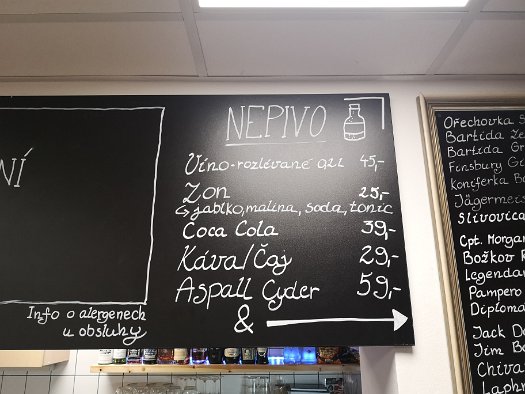 NÍ
Info o alergenech
u obsluhy
NEPIVO
Víno-rozlévané 0,2l 45,-
Zon 25,-
↳ jablko, malina, soda, tonic
Coca Cola 39,-
Káva/Čaj 29,-
Aspall Cyder 59,-
& →
Ořechovka
Bartida
Bartida
Finsbury
Koniferka
Jägermeis
Slivovica
Cpt. Morgan
Božkov
Legendar
Pampero
Diploma
Jack
Jim
Chiva
Laphr